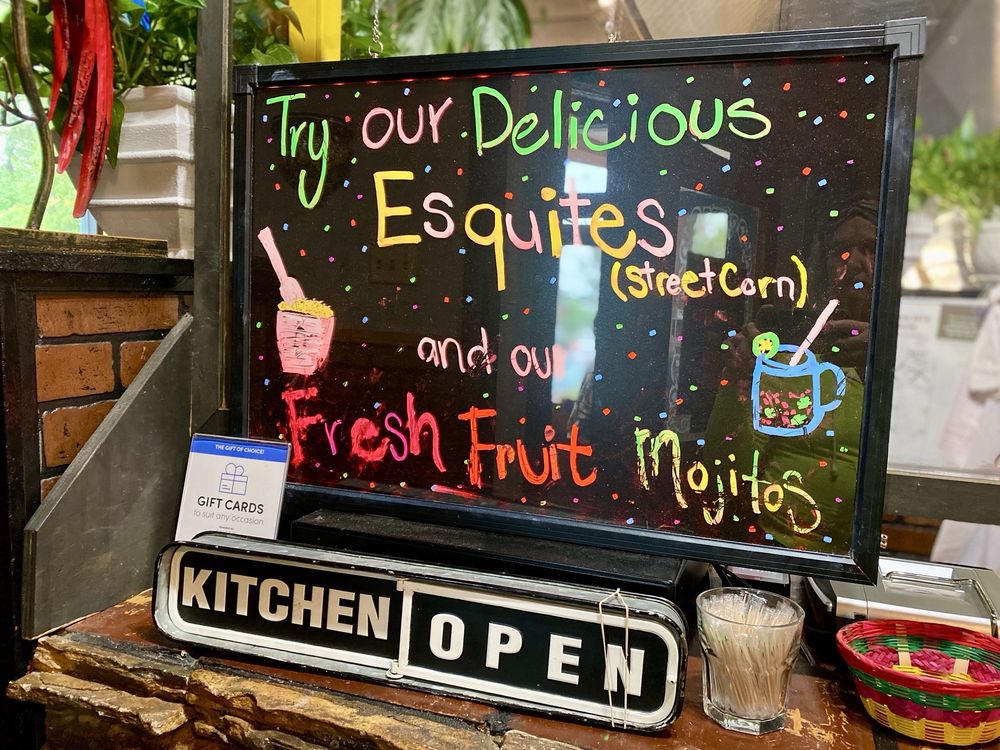 Try our Delicious
Esquites
(street Corn)
and our
Fresh Fruit Mojitos
THE GIFT OF CHOICE!
GIFT CARDS
to suit any occasion
KITCHEN OPEN